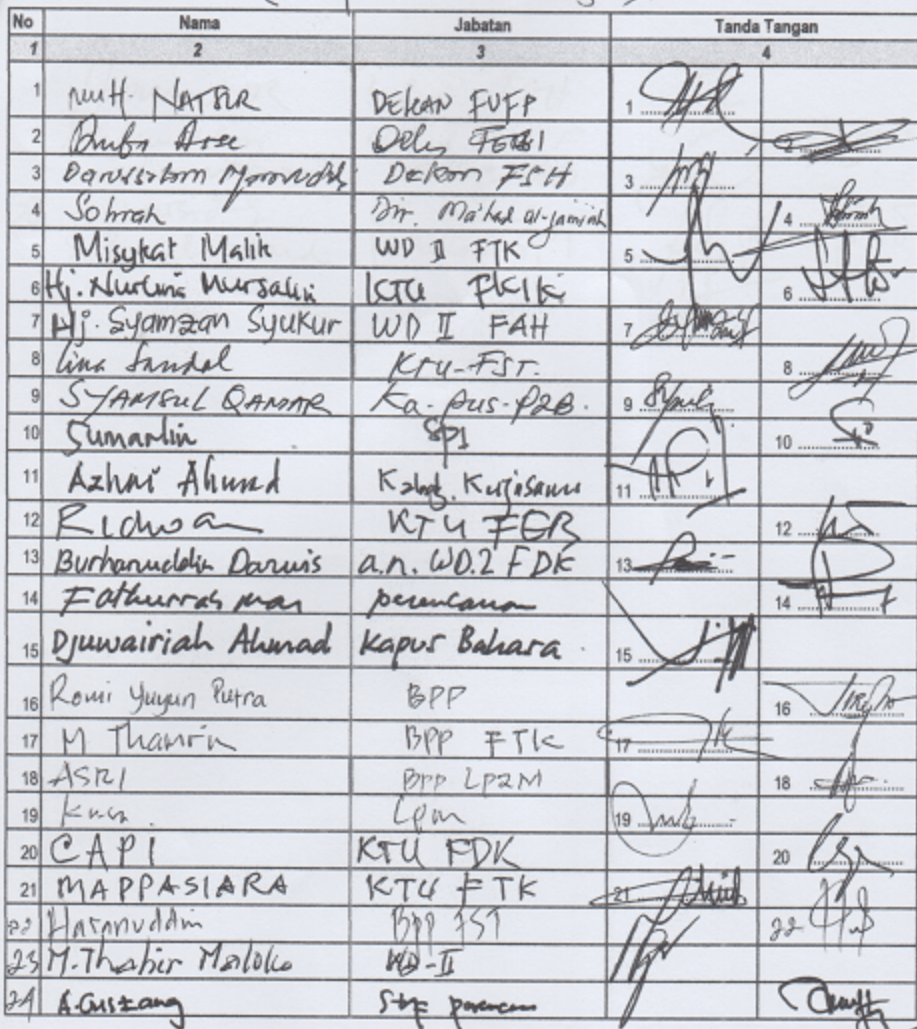 No Nama Jabatan Tanda Tangan
1 2 3 4
1 Muh. NATSIR DEKAN FUFP 1
2 FEBI 2
3 Darussalam Dekan FSH 3
4 Sohrah Dir. Ma'had al-jamiah 4
5 Misykat Malik WD II FTK 5
6 Hj. Nurlina Mursalin KTU FKIK 6
7 Hj. Syamzan Syukur WD II FAH 7
8 Lina KTU-FST. 8
9 SYAMSUL QAMAR Ka-pus-P2B. 9
10 Sumarlin SPI 10
11 Azhar Ahmad Kabag. Kerjasama 11
12 Ridwan KTU 12
13 Burhanuddin Darwis a.n. WD.2 FDK 13
14 Fathurrahman perencanaan 14
15 Djuwairiah Ahmad Kapus Bahara 15
16 Romi Yuyun Putra BPP 16
17 M Thamrin BPP FTK 17
18 ASRI BPP LP2M 18
19 Lpm 19
20 CAPI KTU FDK 20
21 MAPPASIARA KTU FTK 21
22 Hasanuddin BPP FST 22
23 M. Thahir Maloko WD-II
24 A.